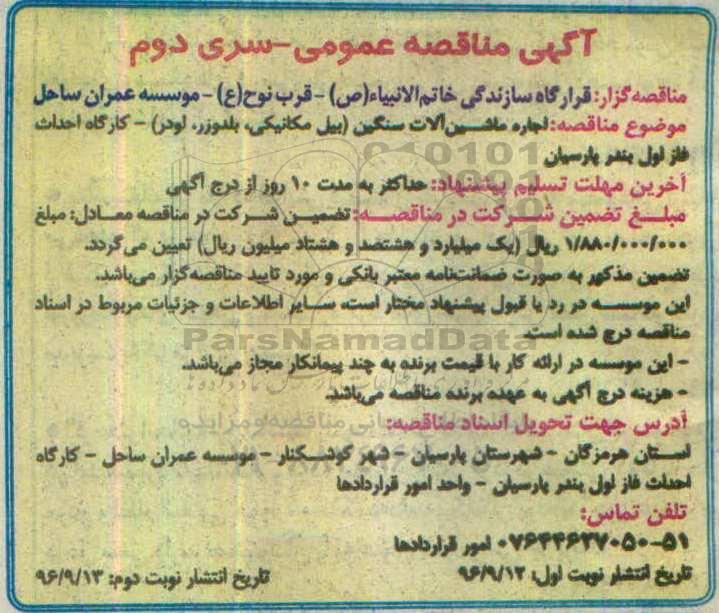 آگهی مناقصه عمومی-سری دوم
مناقصه گزار: قرارگاه سازندگی خاتم الانبیاء(ص) - قرب نوح(ع) - موسسه عمران ساحل
موضوع مناقصه: اجاره ماشین آلات سنگین (بیل مکانیکی، بلدوزر، لودر) - کارگاه احداث
فاز اول بندر پارسیان
آخرین مهلت تسلیم پیشنهاد: حداکثر به مدت ۱۰ روز از درج آگهی
مبلغ تضمین شرکت در مناقصه: تضمین شرکت در مناقصه معادل: مبلغ
۱/۸۸۰/۰۰۰/۰۰۰ ریال (یک میلیارد و هشتصد و هشتاد میلیون ریال) تعیین می گردد.
تضمین مذکور به صورت ضمانت‌نامه معتبر بانکی و مورد تایید مناقصه‌گزار می‌باشد.
این موسسه در رد یا قبول پیشنهاد مختار است، سایر اطلاعات و جزئیات مربوط در اسناد
مناقصه درج شده است.
ParsNamadData
- این موسسه در ارائه کار با قیمت برنده به چند پیمانکار مجاز می‌باشد.
- هزینه درج آگهی به عهده برنده مناقصه می‌باشد.
آدرس جهت تحویل اسناد مناقصه:
استان هرمزگان - شهرستان پارسیان - شهر کوشکنار - موسسه عمران ساحل - کارگاه
احداث فاز اول بندر پارسیان - واحد امور قراردادها
تلفن تماس:
۰۷۶۴۴۶۲۷۰۵۰-۵۱ امور قراردادها
تاریخ انتشار نوبت اول: ۹۶/۹/۱۲
تاریخ انتشار نوبت دوم: ۹۶/۹/۱۳